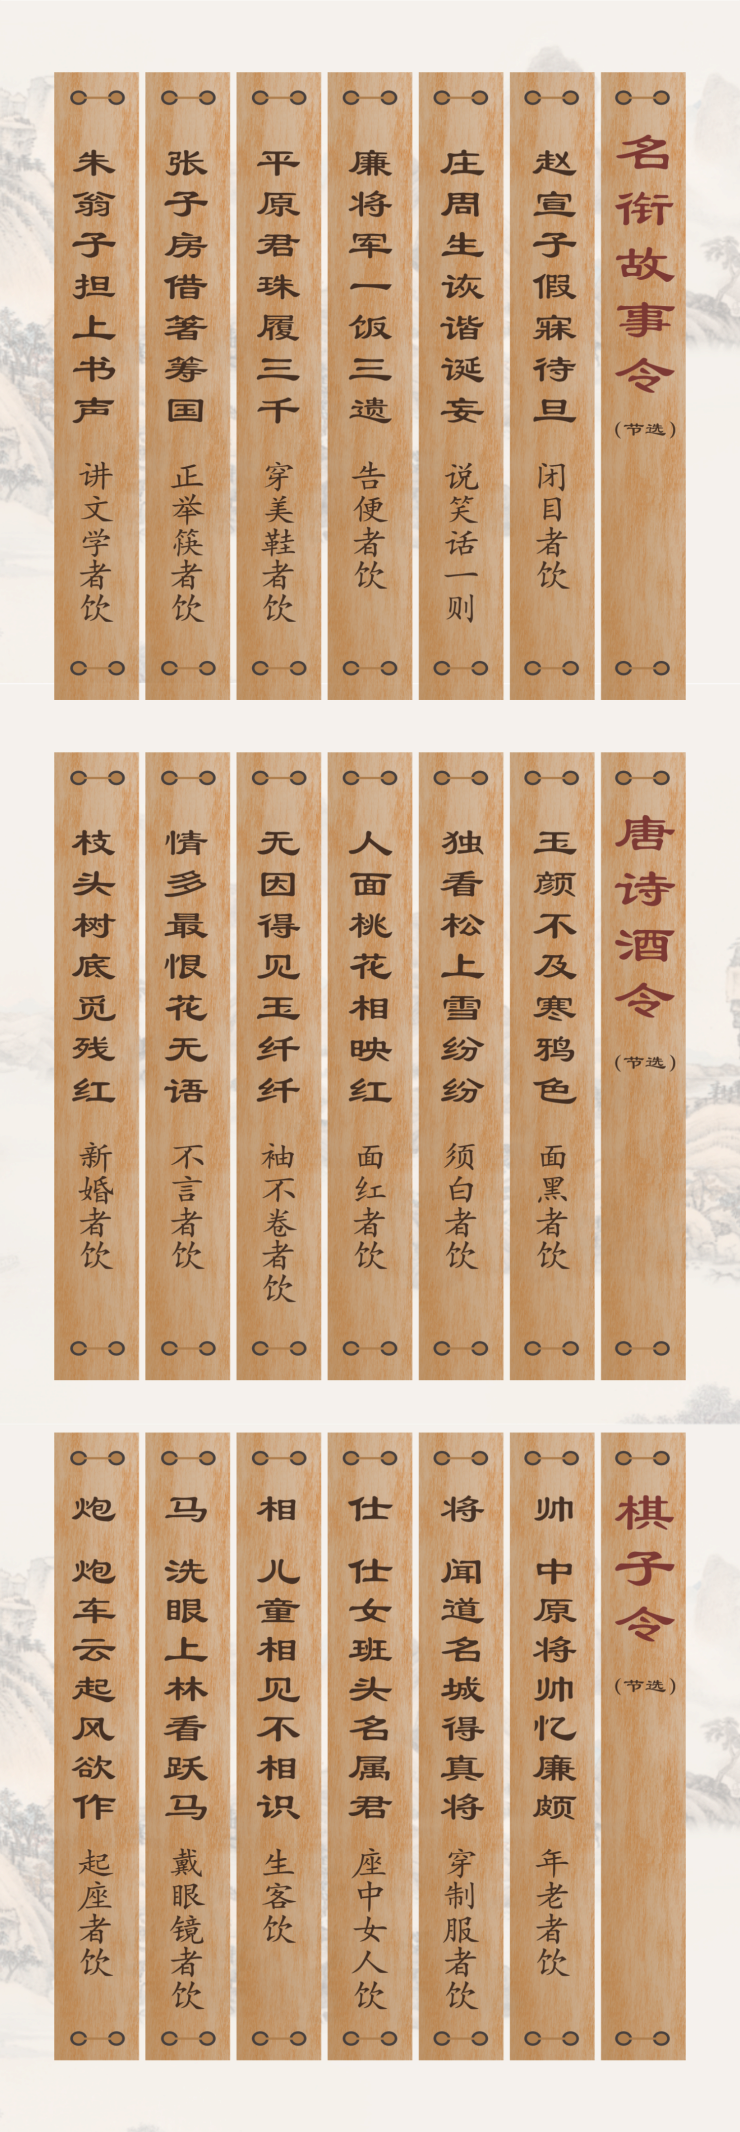 名衔故事令
（节选）
赵宣子假寐待旦
闭目者饮
庄周生诙谐诞妄
说笑话一则
廉将军一饭三遗
告便者饮
平原君珠履三千
穿美鞋者饮
张子房借箸筹国
正举筷者饮
朱翁子担上书声
讲文学者饮
唐诗酒令
（节选）
玉颜不及寒鸦色
面黑者饮
独看松上雪纷纷
须白者饮
人面桃花相映红
面红者饮
无因得见玉纤纤
袖不卷者饮
情多最恨花无语
不言者饮
枝头树底觅残红
新婚者饮
棋子令
（节选）
帅
中原将帅忆廉颇
年老者饮
将
闻道名城得真将
穿制服者饮
仕
仕女班头名属君
座中女人饮
相
儿童相见不相识
生客饮
马
洗眼上林看跃马
戴眼镜者饮
炮
炮车云起风欲作
起座者饮